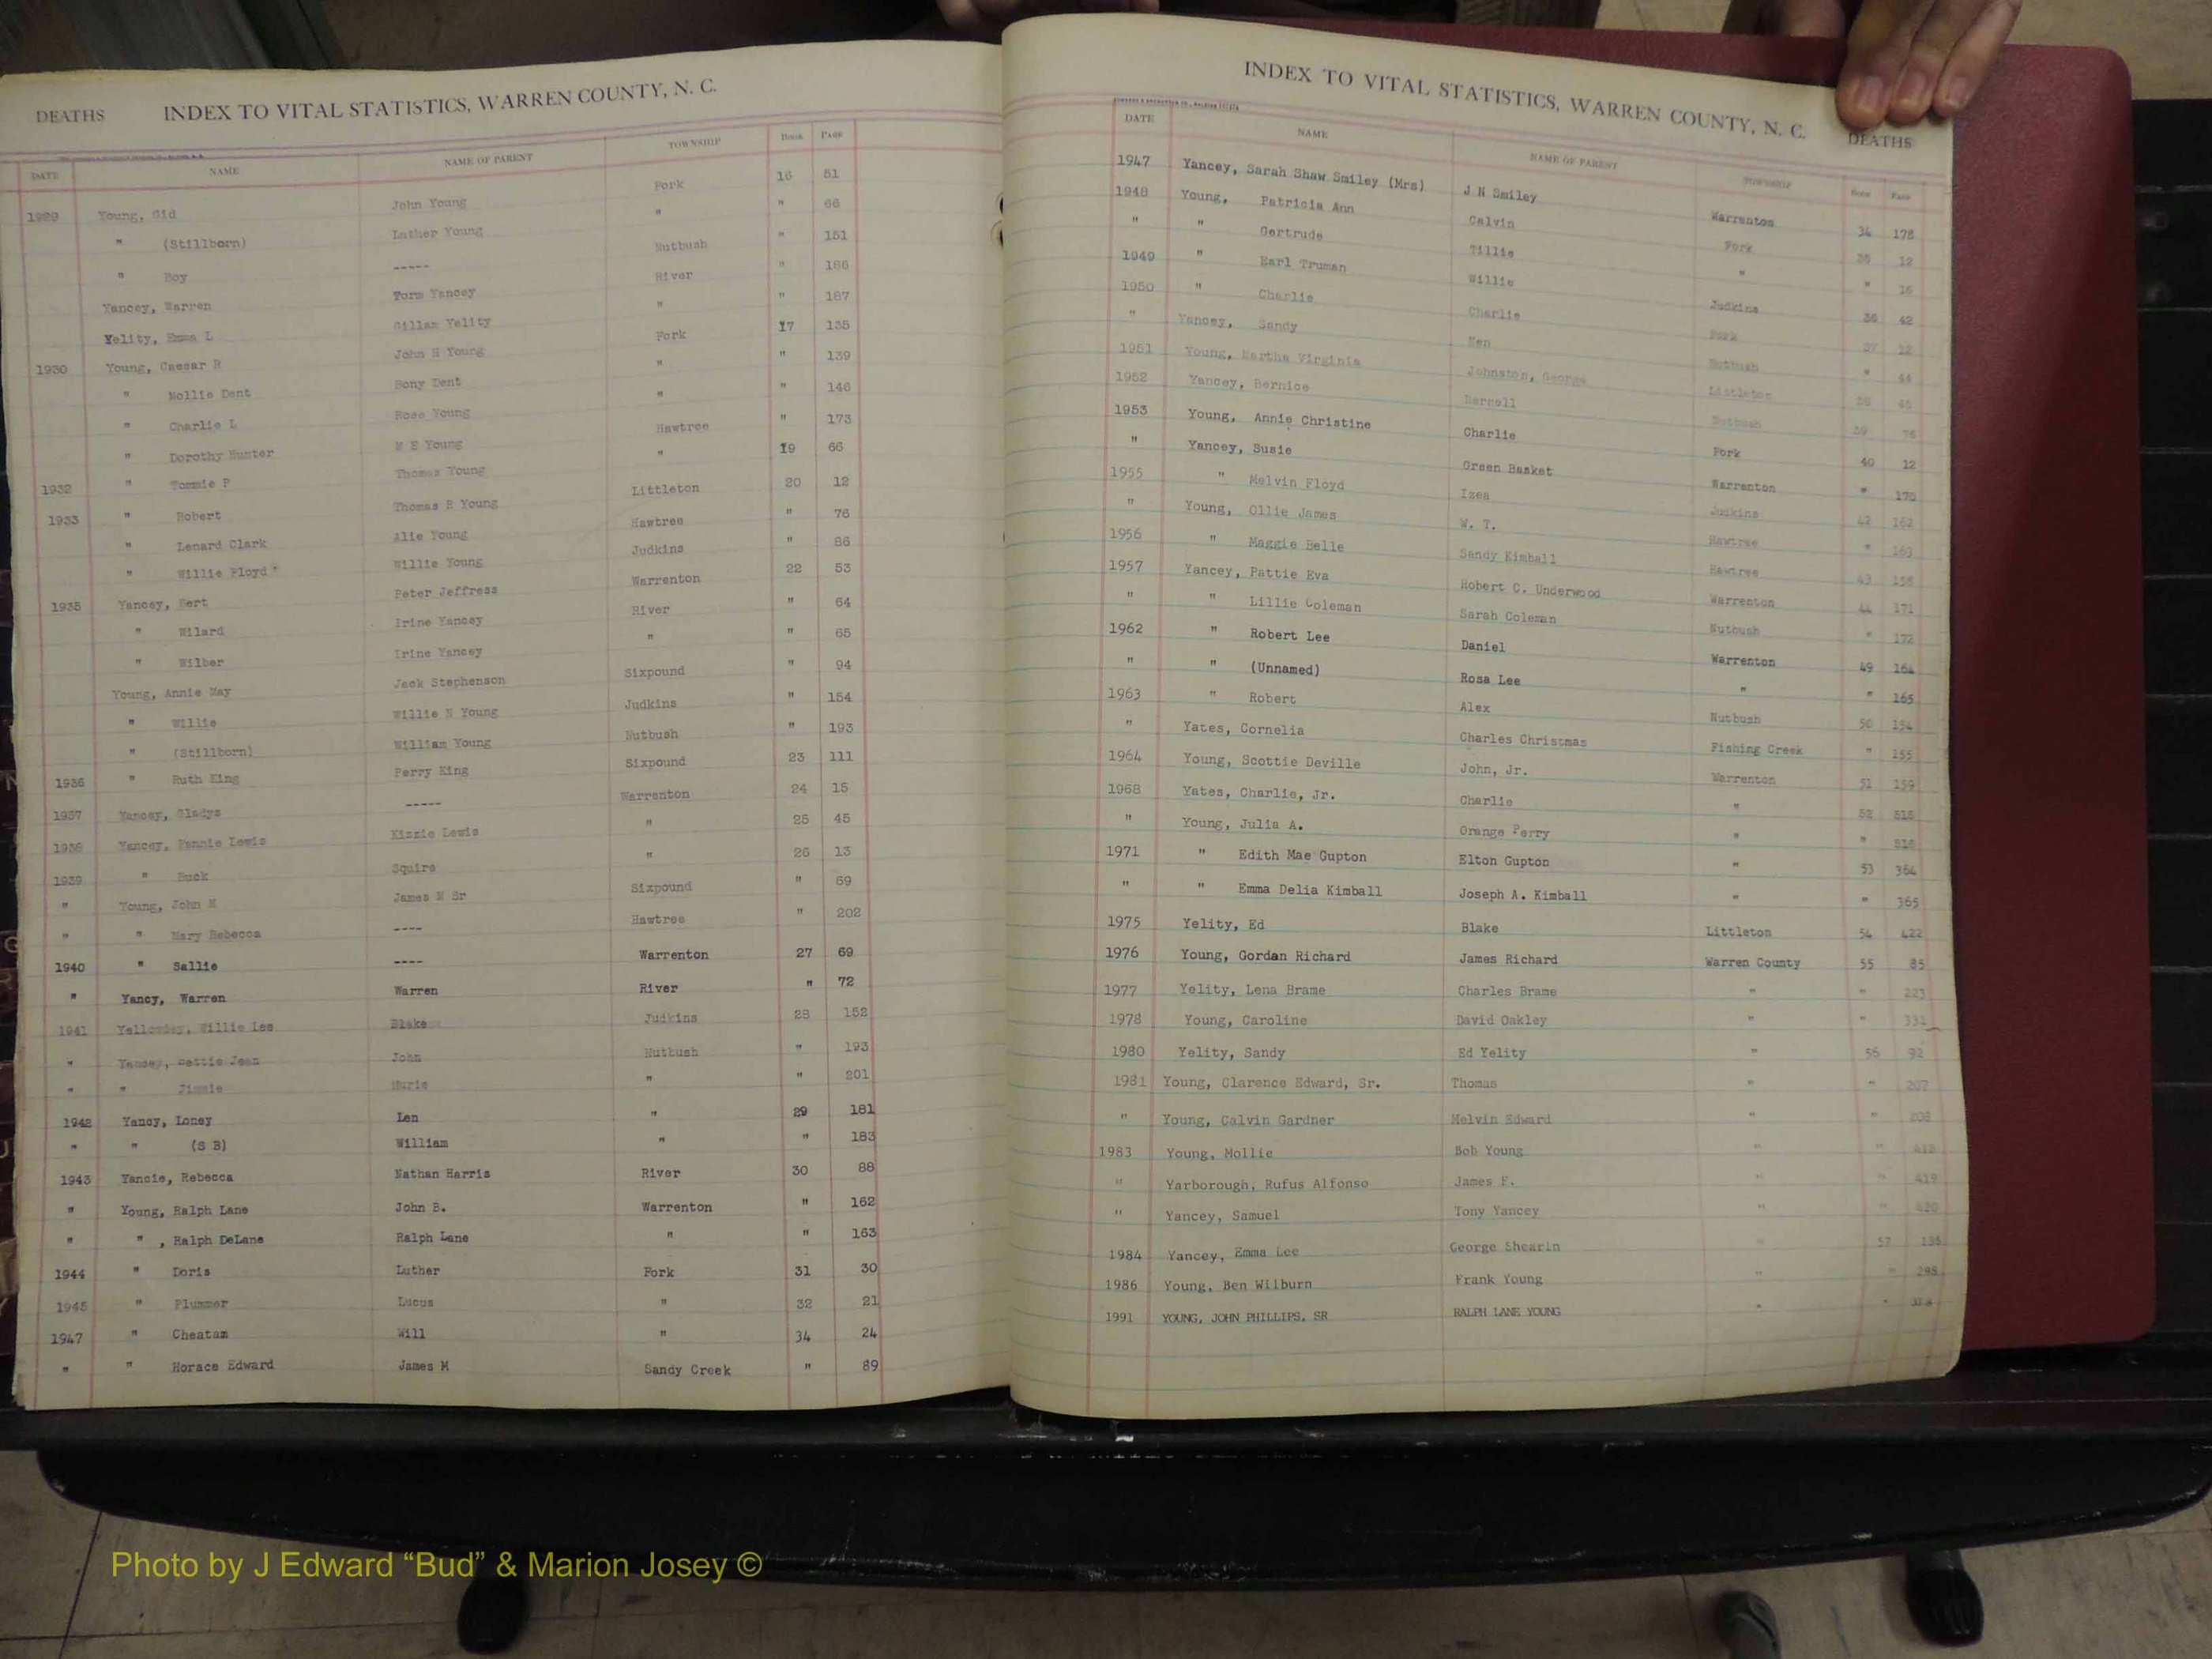 DEATHS INDEX TO VITAL STATISTICS, WARREN COUNTY, N. C.
DATE NAME NAME OF PARENT TOWNSHIP Book PAGE
1929 Young, Gid John Young Fork 16 51
" (Stillborn) Luther Young " " 66
" Boy ----- Nutbush " 151
Yancey, Warren Torm Yancey River " 166
Yelity, Emma L Gillam Yelity " " 187
1930 Young, Caesar R John H Young Fork 17 135
" Mollie Dent Sony Dent " " 139
" Charlie L Rose Young " " 146
" Dorothy Hunter M E Young Hawtree " 173
1932 " Tommie P Thomas Young " 19 66
1933 " Robert Thomas R Young Littleton 20 12
" Lenard Clark Alie Young Hawtree " 76
" Willie Floyd Willie Young Judkins " 86
1935 Yancey, Bert Peter Jeffress Warrenton 22 53
" Wilard Irine Yancey River " 64
" Wilber Irine Yancey " " 65
Young, Annie May Jack Stephenson Sixpound " 94
" Willie Willie N Young Judkins " 154
" (Stillborn) William Young Nutbush " 193
1936 " Ruth King Perry King Sixpound 23 111
1937 Yancey, Gladys ----- Warrenton 24 15
1938 Yancey, Fannie Lewis Kizzie Lewis " 25 45
1939 " Buck Squire " 26 13
" Young, John M James M Sr Sixpound " 69
" " Mary Rebecca ---- Hawtree " 202
1940 " Sallie ---- Warrenton 27 69
" Yancy, Warren Warren River " 72
1941 Yellowday, Willie Lee Blake Judkins 28 152
" Yancey, Bettie Jean John Nutbush " 193
" " Jimmie Murle " " 201
1942 Yancy, Loney Len " 29 181
" " (S B) William " " 183
1943 Yancie, Rebecca Nathan Harris River 30 88
" Young, Ralph Lane John B. Warrenton " 162
" " , Ralph DeLane Ralph Lane " " 163
1944 " Doris Luther Fork 31 30
1945 " Plummer Lucus " 32 21
1947 " Cheatam Will " 34 24
" " Horace Edward James M Sandy Creek " 89
INDEX TO VITAL STATISTICS, WARREN COUNTY, N. C. DEATHS
DATE NAME NAME OF PARENT TOWNSHIP Book PAGE
1947 Yancey, Sarah Shaw Smiley (Mrs) J N Smiley Warrenton 34 178
1948 Young, Patricia Ann Calvin Fork 35 12
" " Gertrude Tillie " " 16
1949 " Earl Truman Willie Judkins 36 42
1950 " Charlie Charlie Fork 37 12
" Yancey, Sandy Hen Nutbush " 44
1951 Young, Martha Virginia Johnston, George Littleton 38 46
1952 Yancey, Bernice Bernoll Nutbush 39 76
1953 Young, Annie Christine Charlie Fork 40 12
" Yancey, Susie Green Basket Warrenton " 170
1955 " Melvin Floyd Izea Judkins 42 162
" Young, Ollie James W. T. Hawtree " 163
1956 " Maggie Belle Sandy Kimball Hawtree 43 158
1957 Yancey, Pattie Eva Robert C. Underwood Warrenton 44 171
" " Lillie Coleman Sarah Coleman Nutbush " 172
1962 " Robert Lee Daniel Warrenton 49 164
" " (Unnamed) Rosa Lee " " 165
1963 " Robert Alex Nutbush 50 154
" Yates, Cornelia Charles Christmas Fishing Creek " 155
1964 Young, Scottie Deville John, Jr. Warrenton 51 159
1968 Yates, Charlie, Jr. Charlie " 52 515
" Young, Julia A. Orange Perry " "
1971 " Edith Mae Gupton Elton Gupton " 53 364
" " Emma Delia Kimball Joseph A. Kimball " " 365
1975 Yelity, Ed Blake Littleton 54 422
1976 Young, Gordan Richard James Richard Warren County 55 85
1977 Yelity, Lena Brame Charles Brame " " 223
1978 Young, Caroline David Oakley " " 331
1980 Yelity, Sandy Ed Yelity " 56 92
1981 Young, Clarence Edward, Sr. Thomas " " 207
" Young, Calvin Gardner Melvin Edward " " 208
1983 Young, Mollie Bob Young " "
" Yarborough, Rufus Alfonso James F. " " 419
" Yancey, Samuel Tony Yancey " " 420
1984 Yancey, Emma Lee George Shearin " 57
1986 Young, Ben Wilburn Frank Young " " 298
1991 YOUNG, JOHN PHILLIPS, SR RALPH LANE YOUNG " "
Photo by J Edward “Bud” & Marion Josey ©